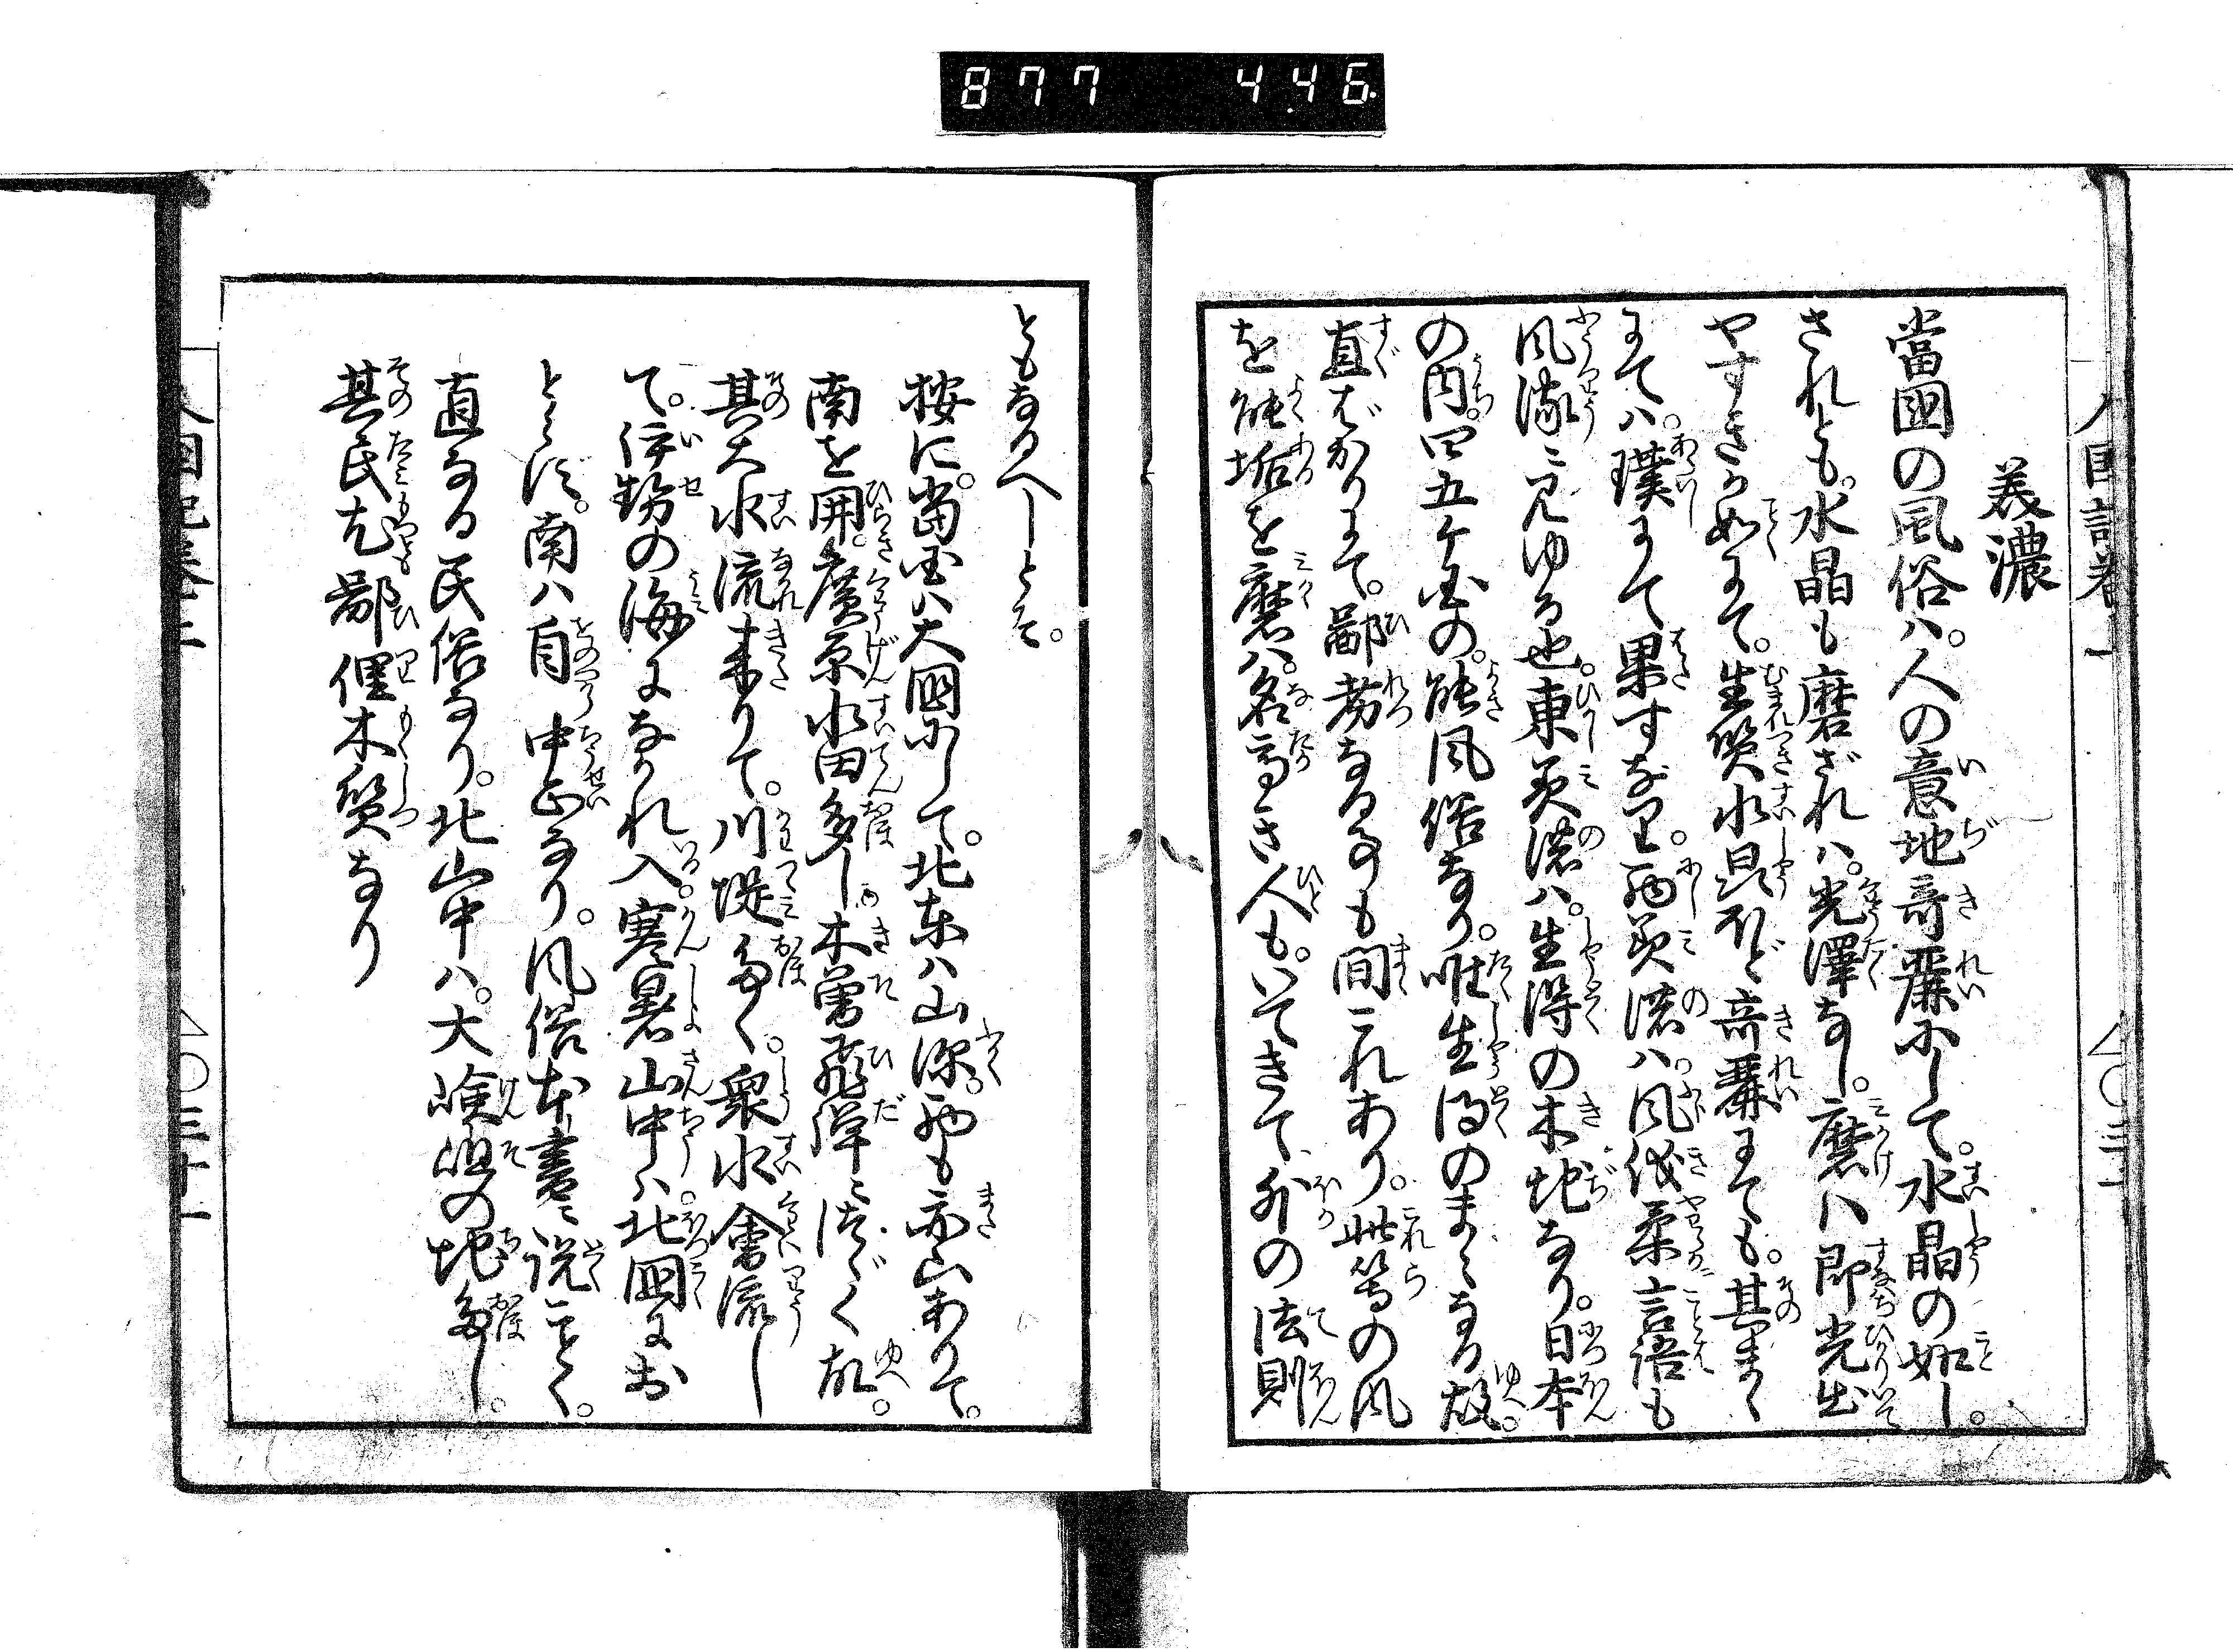 877 446
美濃
當國の風俗ハ。人の意地竒麗にして。水晶の如し。
されとも。水晶も磨ざれハ。光澤なし。磨ハ即光出
やすきか如にて。生質水晶ほど竒麗にても。其まゝ
にてハ。璞にて果すなり。西美濃ハ。風儀柔言語も
風流ニ見ゆる也。東美濃ハ。生得の木地なり。日本
の内。四五ケ国の。能風俗なり。唯生得のまゝなる故。
直ばかりにて。鄙劣なる事も間これあり。此等の風
を能垢を磨ハ。名高き人も。いてきて、外の法則
ともなるへしとそ。
按に。當国ハ大國にして。北東ハ山深。西も亦山ありて。
南を開。廣原水田多し。木曽飛弾ニつゞく故。
其大水流来りて。川堤多く。衆水會流し
て。伊勢の海になかれ入。寒暑山中ハ。北國にお
とらず。南ハ自中正なり。風俗本書ニ説ことく。
直なる民俗なり。北山中ハ。大嶮岨の地多し。
其民尤鄙俚木質なり
人国記巻上
三十一